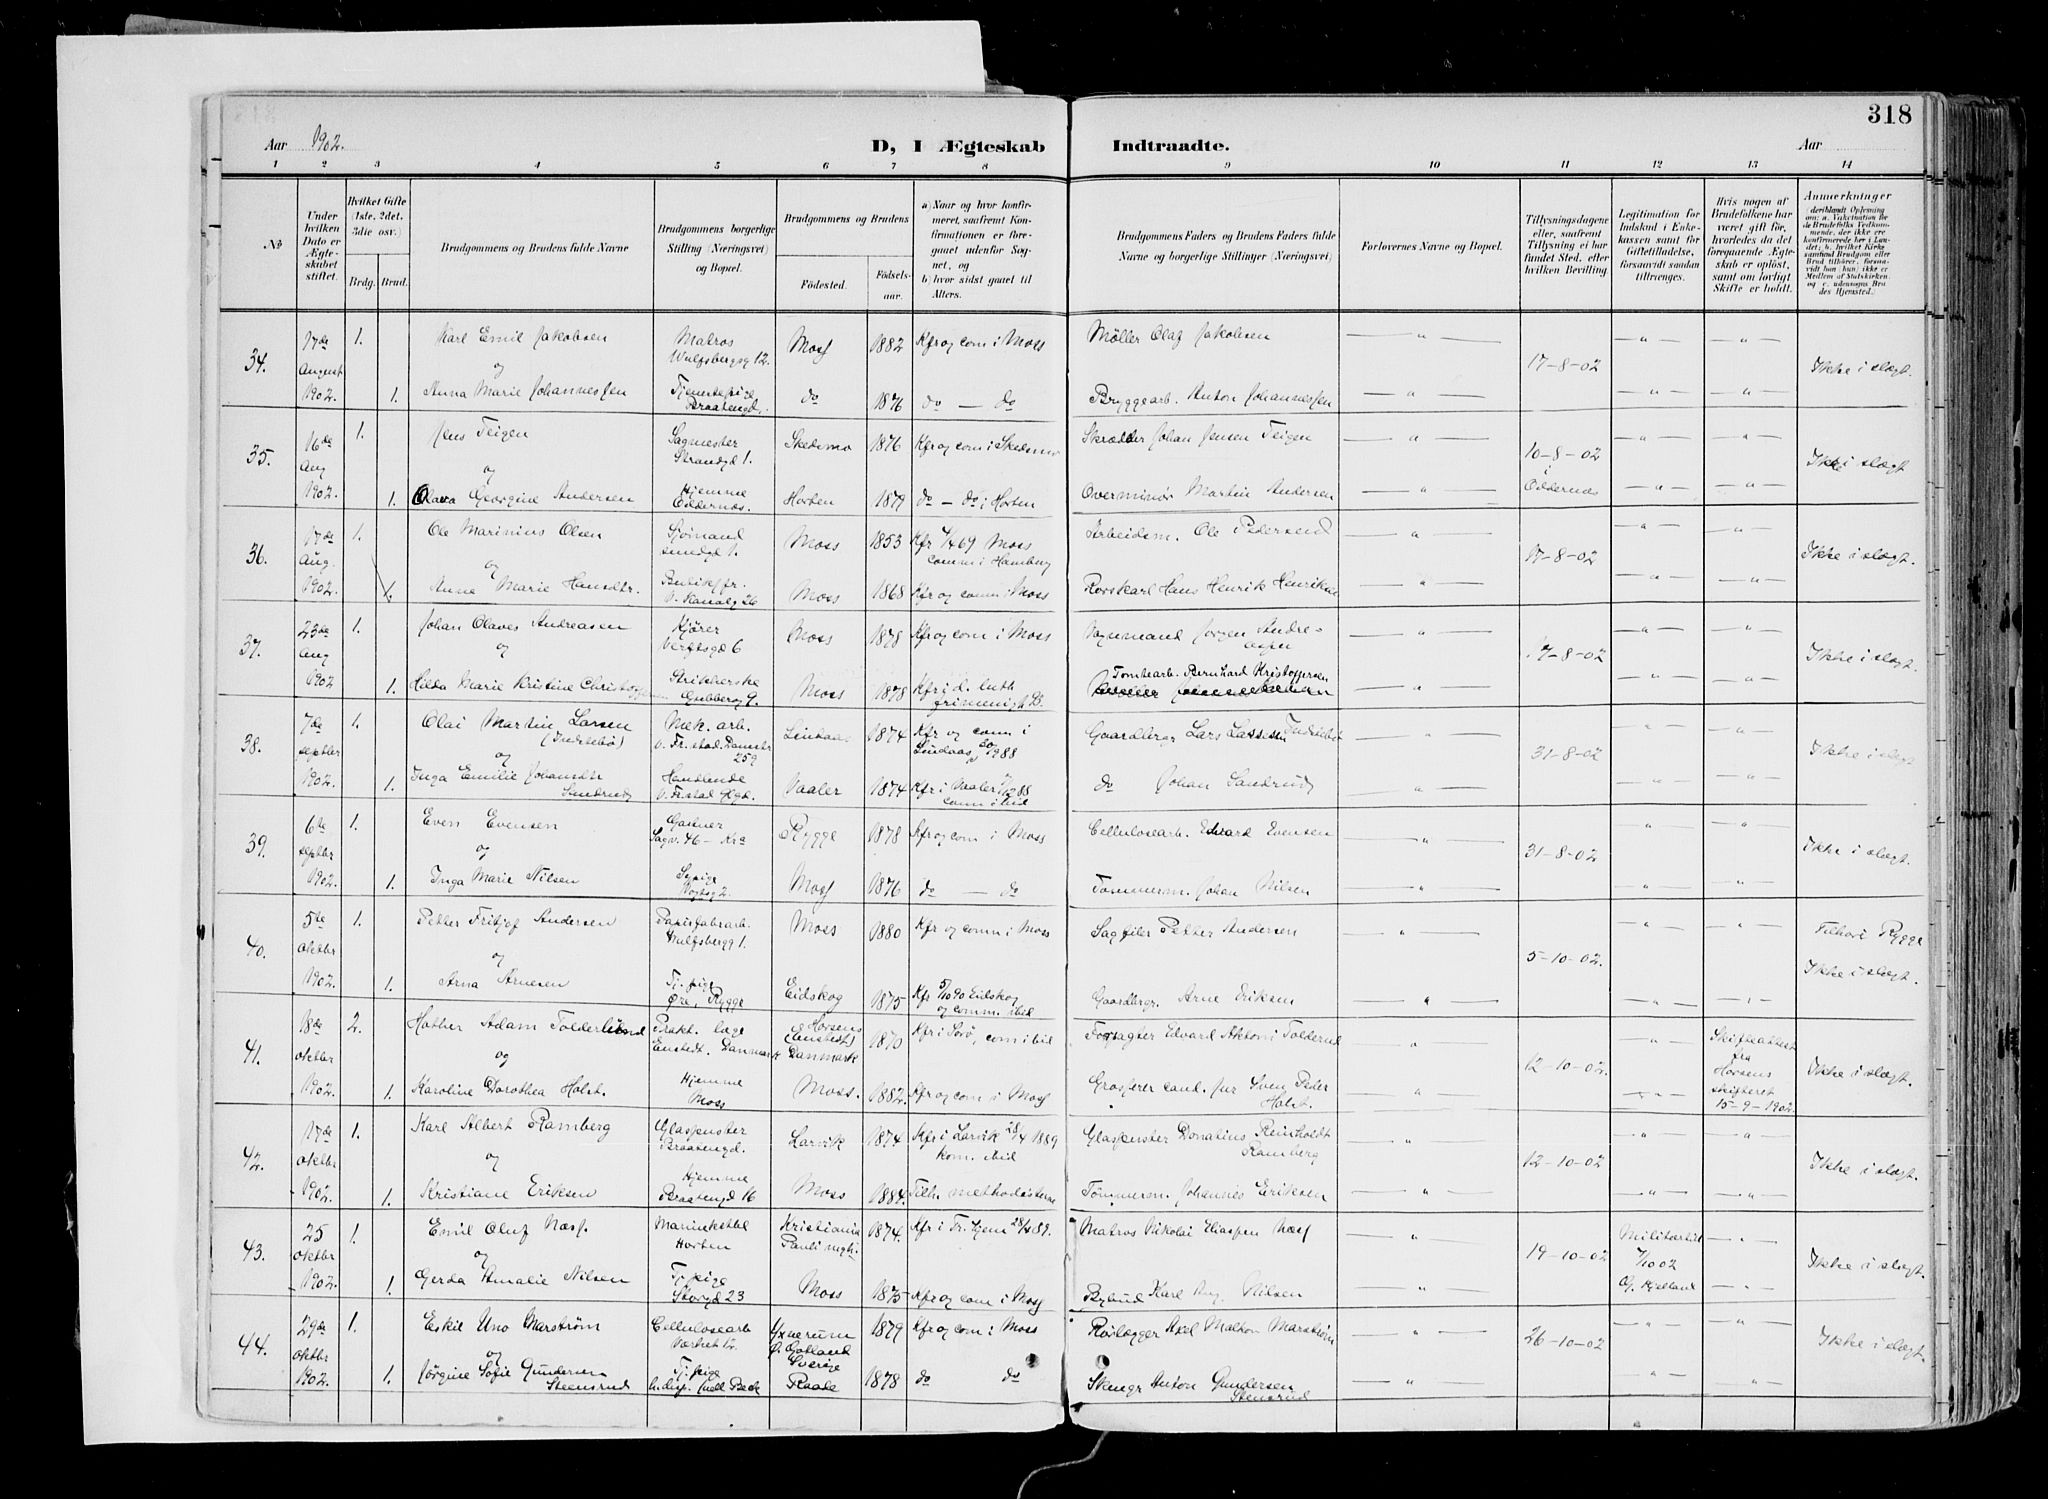 318
Aar 1902.
D, I Ægteskab Indtraadte.
Aar
1 2 3 4 5 6 7 8 9 10 11 12 13 14
No
Under hvilken Dato er Ægteskabet stiftet.
Hvilket Gifte (1ste, 2det, 3die osv.)
Brdg. Brud.
Brudgommens og Brudens fulde Navne
Brudgommens borgerlige Stilling (Næringsvei) og Bopæl.
Brudgommens og Brudens
Fødested.
Fødselsaar.
a) Naar og hvor konfirmeret, saafremt Konfirmationen er foregaaet udenfor Sognet, og
b) hvor sidst gaaet til Alters.
Brudgommens Faders og Brudens Faders fulde Navne og borgerlige Stillinger (Næringsvei)
Forlovernes Navne og Bopæl.
Tillysningsdagene eller, saafremt Tillysning ei har fundet Sted, efter hvilken Bevilling.
Legitimation for Indskud i Enkekassen samt for Giftetilladelse, forsaavidt saadan tiltrænges.
Hvis nogen af Brudefolkene har været gift før, hvorledes da det foregaaende Ægteskab er opløst, samt om lovligt Skifte er holdt.
Anmærkninger
34. 17de August 1902. 1. Karl Emil Jakobsen Matros Wulfsbergsg 12. Moss 1882 Kfr og com i Moss Møller Olaf Jakobsen — " — 17-8-02 Ikke i slægt.
og
1. Anna Marie Johannessen Tjenestepige Braatengd. do 1876 do — do Bryggearb. Anton Johannessen — " —
35. 16de Aug 1902. 1. Jens Teigen Sagmester Strandgd 1. Skedsmo 1876 Kfr og com i Skedsmo Skrædder Johan Jensen Teigen — " — 10-8-02 i Oddernæs Ikke i slægt
og
1. Olava Georgine Andersen Hjemme Oddernæs. Horten 1879 do — do i Horten Overminør Martin Andersen — " —
36. 17de Aug. 1902. 1. Ole Marinius Olsen Sjømand Moss 1853 Kfr 69 Moss comm i Hamburg Arbeidsm. Ole Pedersen — " — 17-8-02 Ikke i slægt.
og
1. Anne Marie Hansdtr. Butikfr. V. Kanalg 26 Moss 1868 Kfr og comm i Moss Rorskarl Hans Henrik Henriksen — " —
37. 23de Aug 1902 1. Johan Olaves Andreasen Kjører Værftsgd 6 Moss 1878 Kfr og com i Moss Vognmand Jørgen Andreasen — " — 17-8-02 Ikke i slægt.
og
1. Hilda Marie Kristine Christoffersen Strikkerske Gubberog 9. Moss 1878 Kfr i d. luth frimenigh Tomtearb. Bernhard Kristoffersen — " —
38. 7de septbr 1902. 1. Olai Martin Larsen Mek. arb. v. Fr. stad. 259 Lindaas 1874 Kfr og com i Lindaas 88 Gaardbrgr Lars Lassesen — " — 31-8-02 Ikke i slægt
og
1. Inga Emilie Johansdtr Sandrud Handlende v. Frstad Vaaler 1874 Kfr i Vaaler 88 comm ibid do Johan Sandrud — " —
39. 6te septbr 1902. 1. Even Evensen Gartner Sagv. 46 – Kra Rygge 1878 Kfr og com i Moss Cellulosearb. Edvard Evensen — " — 31-8-02 Ikke i slægt.
og
1. Inga Marie Nilsen Sypige Vogtsg 2. Moss 1876 do — do Tømmerm. Johan Nilsen — " —
40. 5te oktbr 1902. 1. Petter Fritjof Andersen Papirfabarb. Wulfsbergg 1. Moss 1880 Kfr og comm i Moss Sagfiler Petter Andersen — " — 5-10-02. Tilhøre Rygge Ikke i slægt.
og
1. Arna Arnesen Tj. pige Øre, Rygge Eidskog 1875 Kfr 5/10 90 Eidskog og comm. ibid Gaardbrgr. Arne Eriksen — " —
41. 18de oktbr 1902. 2. Hother Adam Tolderlund Prakt. læge Enstedt. Danmark Horsens (Enstedt) Danmark 1870 Kfr i Sorø, com ibid Forpagter Edvard Tolderlund — " — 12-10-02. Skifteattest fra Horsens skifteret 15-9-1902. Ikke i slægt.
og
1. Karoline Dorothea Holst. Hjemme Moss Moss. 1882. Kfr og com i Moss Grosserer cand. jur Sven Peder Holst. — " —
42. 17de oktbr 1902. 1. Karl Albert Ramberg Glaspuster Braatengd. Larvik 1874 Kfr i Larvik 28/4 1889 kom. ibid Glaspuster Donatius Reinholdt Ramberg — " — 12-10-02 Ikke i slægt.
og
1. Kristiane Eriksen Hjemme Braatengd 16 Moss 1884. Tilh. methodisterne Tømmerm. Johannes Eriksen — " —
43. 25 oktbr 1902. 1. Emil Oluf Næss. Horten Kristiania Pauli mgh. 1874. Kfr i Tr. hjem 89. Matros Nikolai Eliassen Næss — " — 19-10-02 Militærtil 7/10 02 Ikke i slægt.
og
1. Gerda Amalie Nilsen Tj. pige Storgd 23 Moss 1875 Kfr og com i Moss Bybud Karl Aug. Nilsen — " —
44. 29de oktbr 1902. 1. Eskil Uno Marstrøm Cellulosearb Værket 12. Yxnerum Ø. Gotland Sverige 1879 Kfr og com i Moss Rørlægger Axel Malkon Marstrøm — " — 26-10-02 Ikke i slægt.
og
1. Jørgine Sofie Gundersen Steensrud Tj. pige Raade 1878 do do Skrægr Anton Gundersen Stensrud